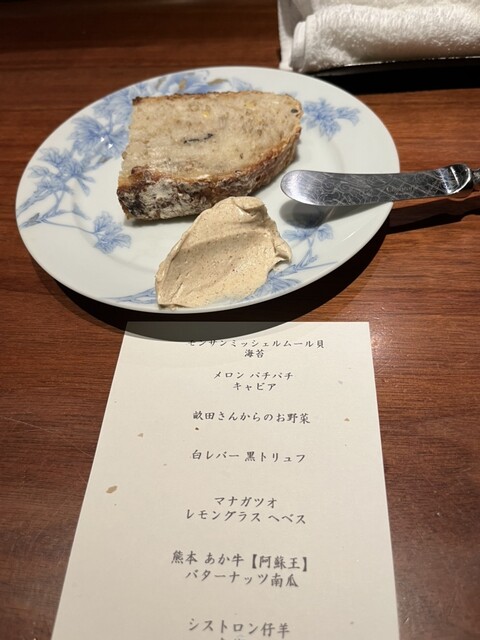 モンサンミッシェルムール貝
海苔
メロン パチパチ
キャビア
畝田さんからのお野菜
白レバー 黒トリュフ
マナガツオ
レモングラス ヘベス
熊本 あか牛【阿蘇王】
バターナッツ南瓜
シストロン仔羊